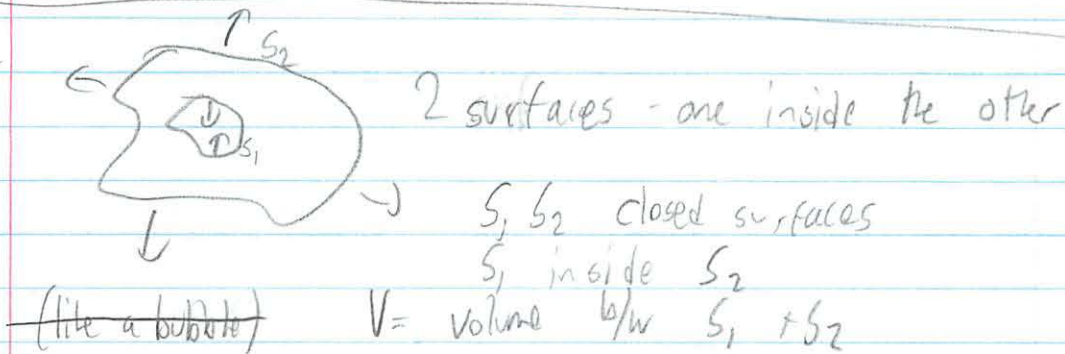 S2
2 surfaces - one inside the other
S1
S1 S2 closed surfaces
S1 inside S2
(like a bubble)
V = volume b/w S1 + S2